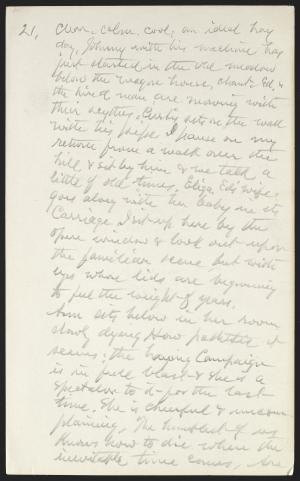 21. Clear, calm, cool; an ideal hay
day, Johnny with his machine has
just started in the old meadow
below the wagon house, Chant, Ed, &
the hired man are mowing with
their scythes. Curtis sits on the wall
with his pipe. I pause on my
return from a walk over the
hill & sit by him & we talk a
little of old times. Eliza, Ed's wife,
goes along with her baby in its
Carriage. I sit up here by the
open window & look out upon
the familiar scene but with
eyes whose lids are beginning
to feel the weight of years.
Ann sits below in her room
slowly dying. How pathetic it
seems; the haying Campaign
is in full blast & she is a
spectator to it for the last
time. She is cheerful & uncom-
plaining. The humblest of us
knows how to die when the
inevitable time comes,